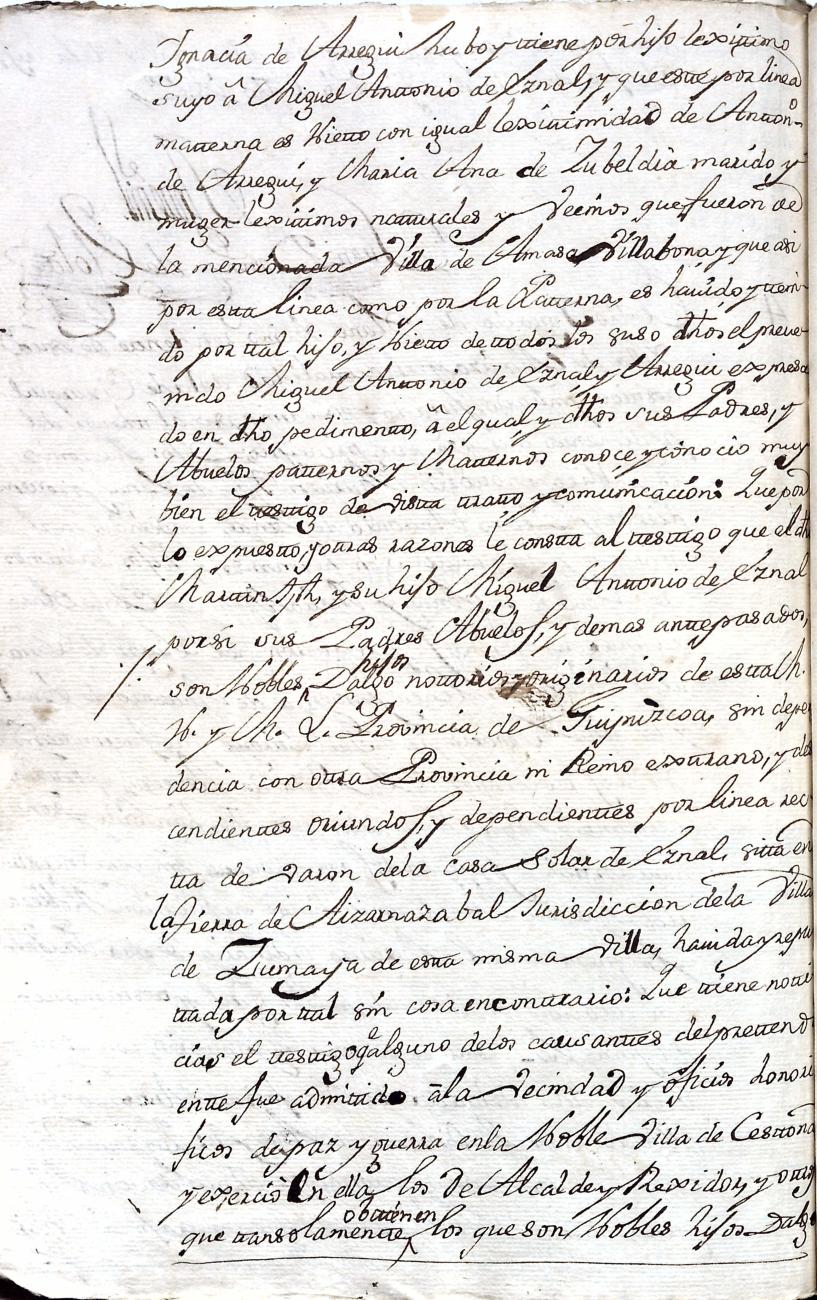 Ignacia de Arregui hubo y ttiene por hijo lexittimo
suyo â Miguel Anttonio de Eznal, y que estte por linea
matterna es Nietto con igual lexittimidad de Anttonº
de Arregui, y Maria Ana de Zubeldia marido y
muger lexittimos natturales y Vecinos que fueron de
la mencionada Villa de Amasa Villabona y que asi
por estta linea como por la Patterna, es havido y tteni-
do por ttal hijo, y Nietto de ttodos los suso dhôs el preve-
nido Miguel Anttonio de Eznal y Arregui expresa
do en dhô pedimentto, â el qual y dhôs sus Padres, y
Abuelos patternos y Matternos conoce y conocio muy
bien el ttesttigo de vistta tratto y comunicacion: Que por
lo expuestto, y ottras razones le constta al ttesttigo que el dhô
Martin Jph, y su hijo Miguel Anttonio de Eznal
por si sus Padres Abuelos, y demas anttepasados,
son Nobles hijos Dalgo nottorios y originarios de estta M.
N. y M. L. Provincia de Guipuzcoa, sin depen
dencia con ottra Provincia ni Reino exttraño, y des
cendienttes oriundos, y dependienttes por linea rec
tta de varon dela casa Solar de Eznal, sitta en
la Tierra de Aizarnazabal Jurisdiccion dela Villa
de Zumaya de estta misma villa, havida y repu
ttada por ttal sin cosa en conttrario: Que ttiene notti
cias el ttesttigo qê alguno delos causanttes del prettend
entte fue admittido âla Vecindad y oficios honori
ficos de paz y guerra en la Noble Villa de Cesttona
y exerció en ella los de Alcalde y Rexidor, y ottros
que ttan solamentte obttienen los que son Nobles hijos Dalgo